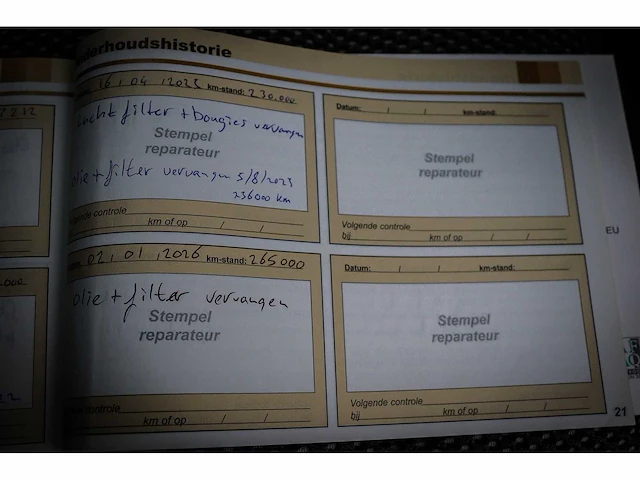 derhoudshistorie
16 / 04 / 2025 km-stand: 230.000
lucht filter + bougies vervangen
Stempel
reparateur
olie + filter vervangen 5/8/2025
236000 km
Volgende controle
km of op / /
02 / 01 / 2026 km-stand: 265000
olie + filter vervangen
Stempel
reparateur
controle
km of op / /
Datum: / / km-stand:
Stempel
reparateur
Volgende controle
bij km of op / /
Datum: / / km-stand:
Stempel
reparateur
Volgende controle
bij km of op / /
EU
21